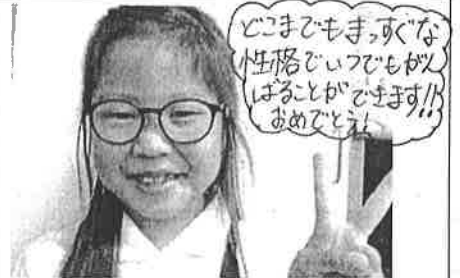 どこまでもまっすぐな
性格でいつでもがん
ばることができます!!
おめでとう!